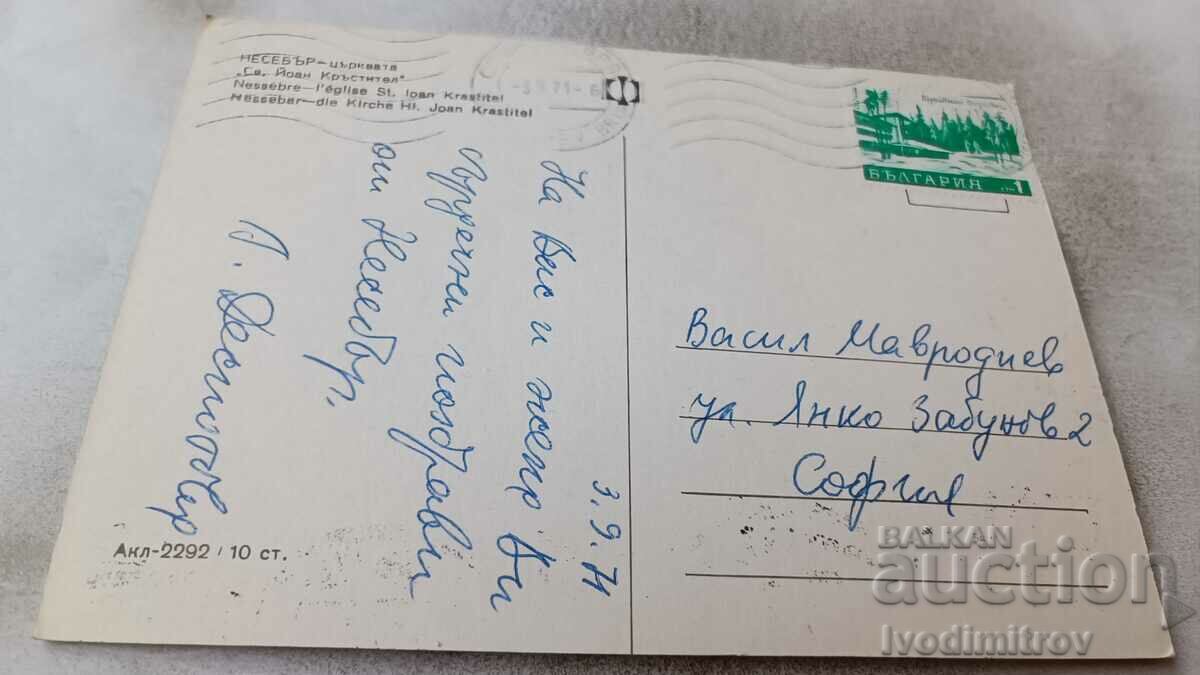 НЕСЕБЪР — църквата
„Св. Йоан Кръстител"
Nessèbre — l'église St. Ioan Krastitel
Nessebar — die Kirche Hl. Joan Krastitel
3.9.71
На Вас и жена Ви
сърдечни поздрави
от Несебър.
Акл-2292 / 10 ст.
БЪЛГАРИЯ 1
Васил Мавродиев
ул. Янко Забунов 2
София
BALKAN
auction
Ivodimitrov